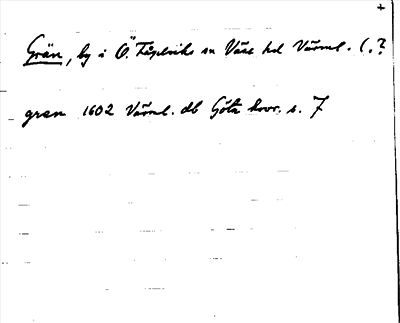 +
Grän, by i Ö. Fågelviks sn Väse hd Värml. (.?
gran 1602 Värml. db Göta hovr. s. 7